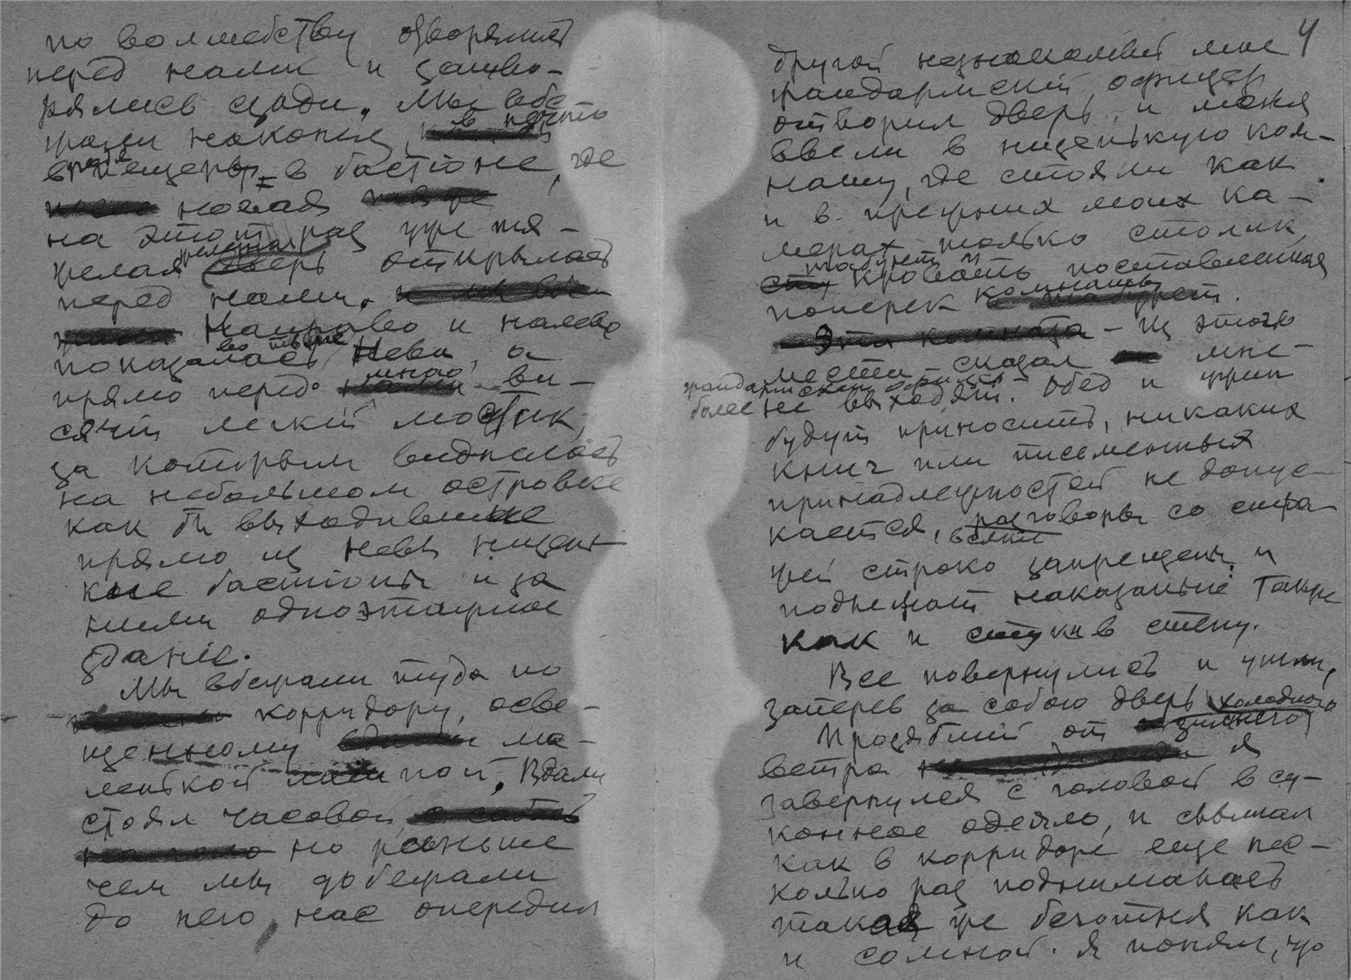 по волшебству отворялись
перед нами и затво-
рялись сзади. Мы вбе-
жали наконец, в нечто
вроде пещеры в бастіоне, где
новая
на этот раз уже тя-
желая железная дверь открылась
перед нами.
Направо и налево
показалась во тьме Нева, а
прямо перед мною ви-
сячій легкій мостик,
за которым виднелось
на небольшом островке
как бы выходившие
прямо из Невы низень-
кие бастіоны и за
ними одноэтажное
зданіе.
Мы вбежали туда по
корридору, осве-
щенному ма-
ленькой лампой. Вдали
стоял часовой
но раньше
чем мы добежали
до него, нас опередил
4
другой незнакомый мне
жандармскій офицер
отворил дверь, и меня
ввели в низенькую ком-
нату, где стояли как
и в прежних моих ка-
мерах только столик,
табурет и кровать поставленная
поперек комнаты.
Из этого
места - сказал мне -
жандармскій офицер
более не выходят. Обед и ужин
будут приносить, никаких
книг или письменных
принадлежностей не допус-
кается, всякие разговоры со стра-
жей строго запрещены и
подлежат наказанію также
как и стуки в стену.
Все повернулись и ушли,
заперев за собою дверь
Прозябший от холодного зимнего
ветра я
завернулся с головой в су-
конное одеяло, и слышал
как в корридоре еще нес-
колько раз поднималась
такая же беготня как
и со мной. Я понял, что